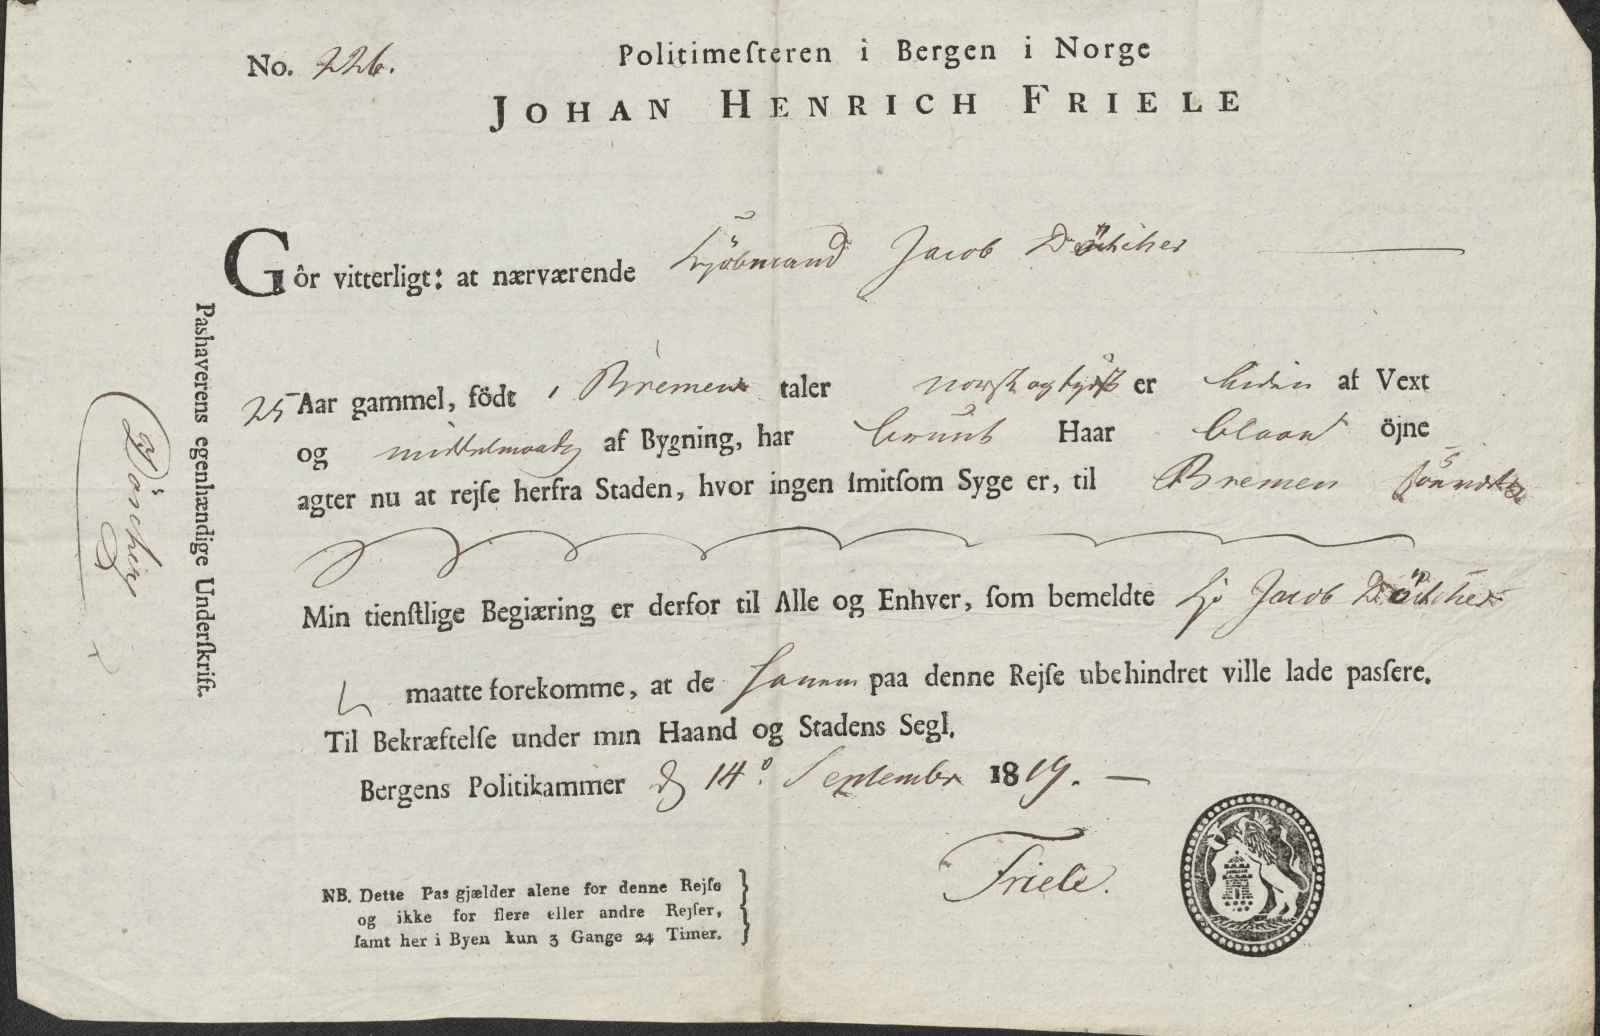 No. 226.
Politimeſteren i Bergen i Norge
JOHAN HENRICH FRIELE
Gôr vitterligt: at nærværende Kjöbmand Jacob
25 Aar gammel, födt i Bremen taler norsk og tydsk er liden af Vext
og middelmaadig af Bygning, har bruunt Haar blaae öjne
agter nu at rejſe herfra Staden, hvor ingen ſmitſom Syge er, til Bremen
Min tienſtlige Begiæring er derfor til Alle og Enhver, ſom bemeldte Kjö Jacob
maatte forekomme, at de ham paa denne Rejſe ubehindret ville lade paſſere.
Til Bekræftelſe under min Haand og Stadens Segl.
Bergens Politikammer d. 14de September 1819.
Friele.
NB. Dette Pas gjælder alene for denne Rejſe
og ikke for flere eller andre Rejſer,
ſamt her i Byen kun 3 Gange 24 Timer.
Pashaverens egenhændige Underſkrift.